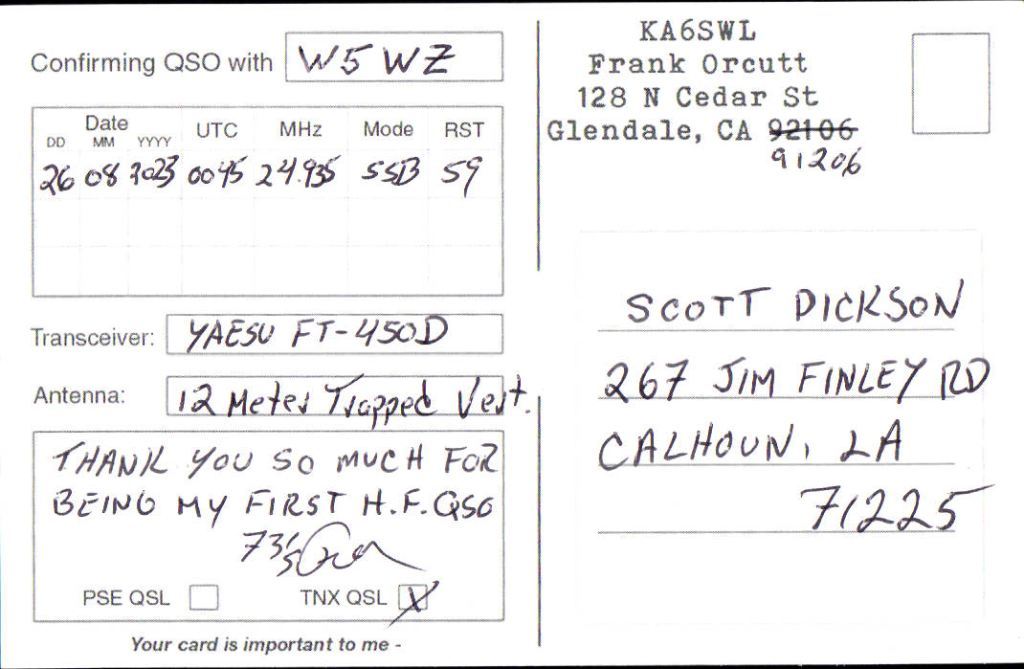 Confirming QSO with W5WZ
Date
DD MM YYYY UTC MHz Mode RST
26 08 2023 0045 24.935 SSB 59
Transceiver: YAESU FT-450D
Antenna: 12 Meter Trapped Vert.
THANK YOU SO MUCH FOR
BEING MY FIRST H.F. QSO
73's
PSE QSL TNX QSL X
Your card is important to me -
KA6SWL
Frank Orcutt
128 N Cedar St
Glendale, CA 92106
91206
SCOTT DICKSON
267 JIM FINLEY RD
CALHOUN, LA
71225